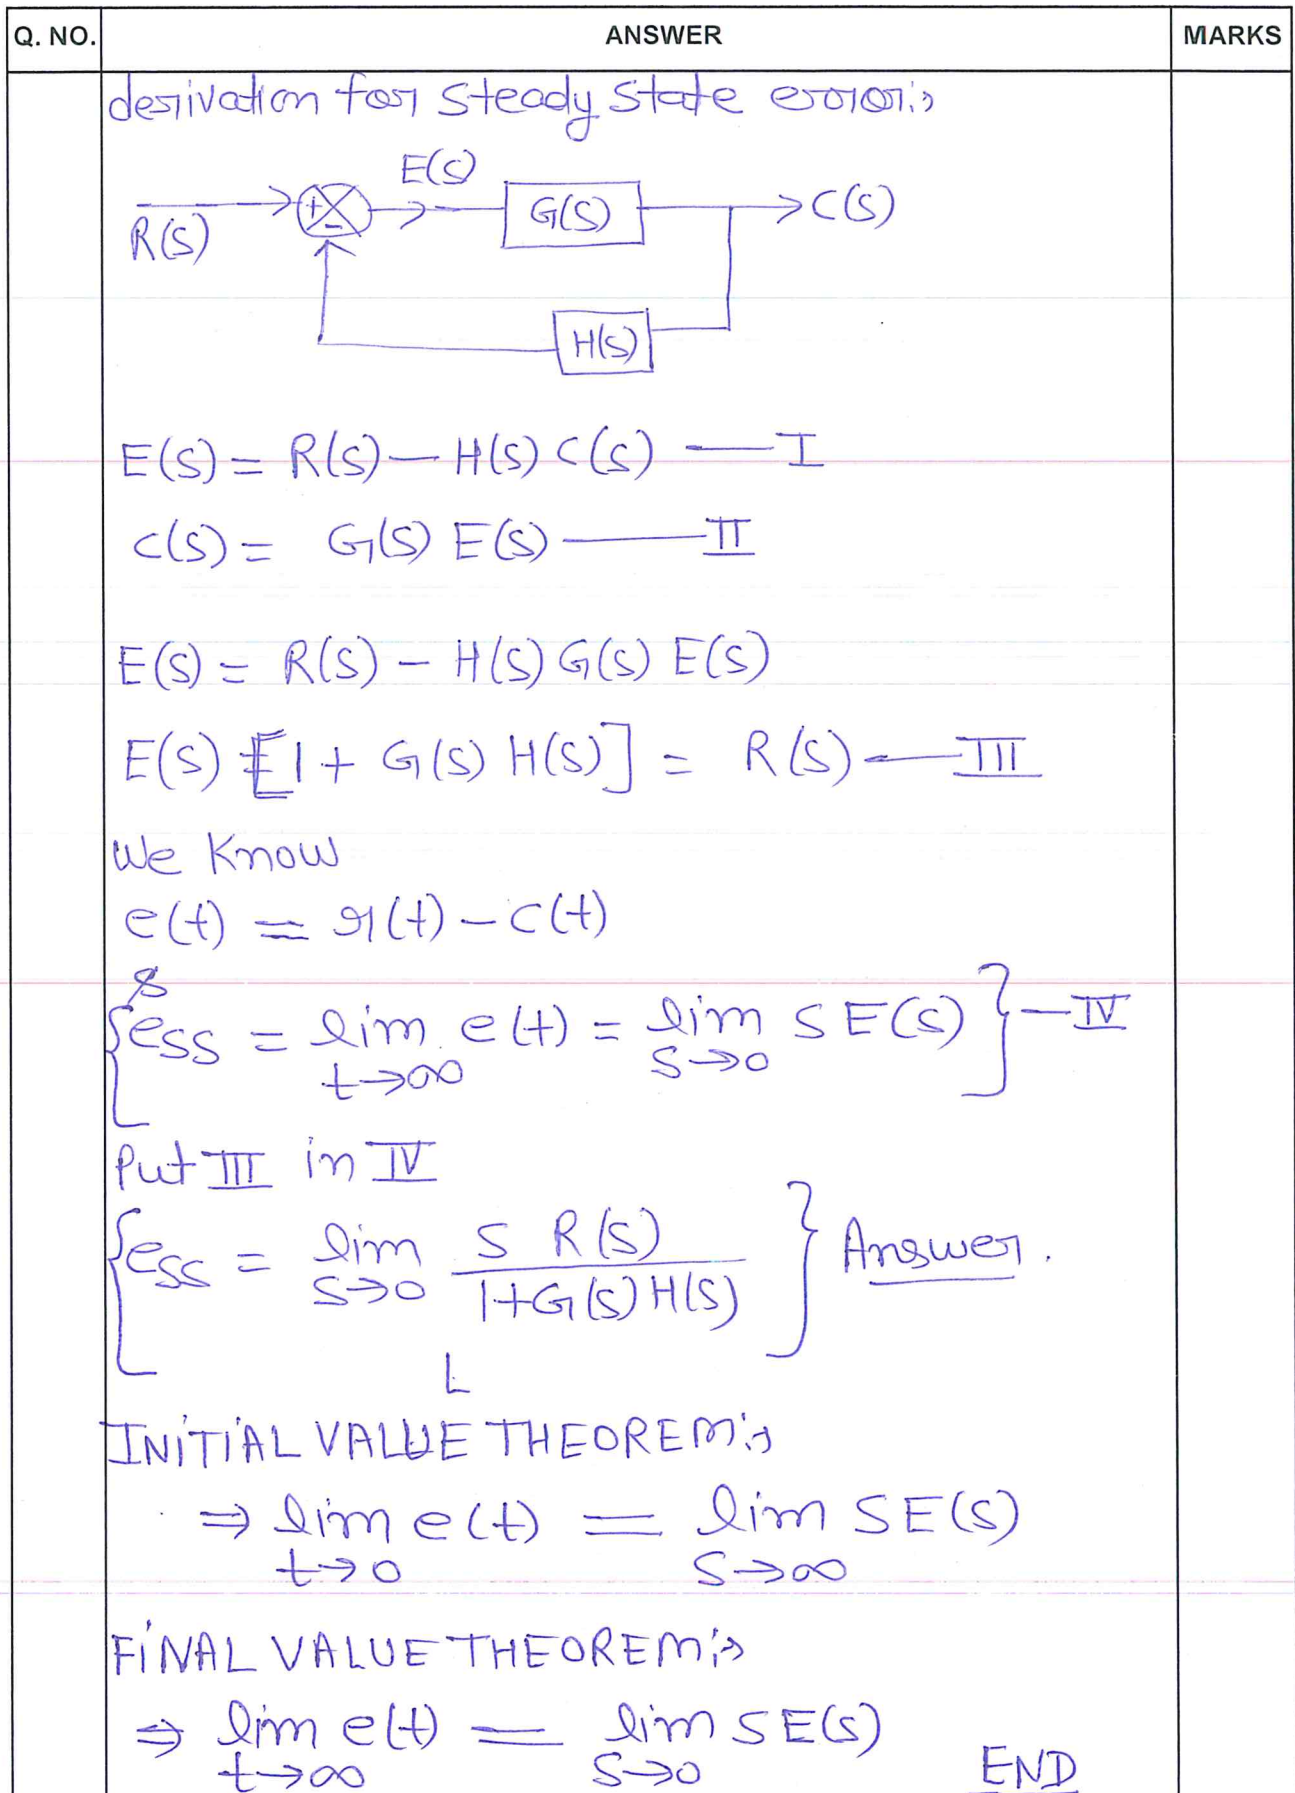 Q. NO. ANSWER MARKS
derivation for steady state error:→
E(S)
R(S) + - G(S) C(S)
H(S)
E(S) = R(S) — H(S) C(S) — I
C(S) = G(S) E(S) — II
E(S) = R(S) — H(S) G(S) E(S)
E(S) [1 + G(S) H(S)] = R(S) — III
We Know
e(t) = r(t) — c(t)
{ess = lim e(t) = lim S E(S)} — IV
t→∞ S→0
Put III in IV
{ess = lim S R(S) } Answer.
S→0 1+G(S)H(S)
L
INITIAL VALUE THEOREM:→
⇒ lim e(t) = lim SE(S)
t→0 S→∞
FINAL VALUE THEOREM:→
⇒ lim e(t) = lim SE(S)
t→∞ S→0
END